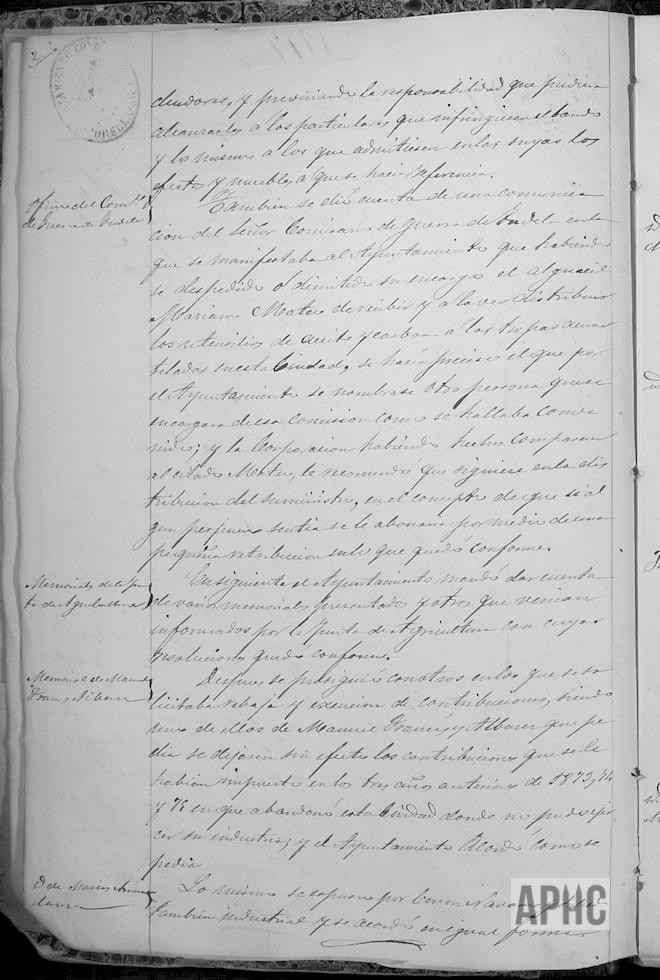 2
deudores, y previniendo la responsabilidad que pudiera
alcanzarles a los particulares que infringiesen el bando
y lo mismo a los que admitiesen en las suyas los
efectos y muebles a que se hacia referencia.
Oficio del Com.º
de Guerra de Tudela
Tambien se dió cuenta de una comunica
cion del Señor Comisario de Guerra de Tudela en la
que se manifestaba al Ayuntamiento que habiendo
se despedido ó dimitido su encargo el alguacil
Mariano Mateo de recibir y a la vez distribuir
los utensilios de aceite y carbon a las tropas acuar
teladas en esta Ciudad, se hacia preciso el que por
el Ayuntamiento se nombrase otra persona que se
encargara de esa comision como se hallaba conve
nido; y la Corporacion habiendo hecho comparecer
al citado Mateo, le recomendó que siguiese en la dis
tribucion del suministro, en el concepto de que si al
gun perjuicio sentia se le abonaria por medio de una
pequeña retribucion en lo que quedó conforme.
Memoriales de la Jun
ta de Agricultura
En siguiente el Ayuntamiento mandó dar cuenta
de varios memoriales presentados y otros que venian
informados por la Junta de Agricultura con cuyas
resoluciones quedó conforme.
Memorial de Manuel
Frances Albares
Despues se prosiguió con otros en los que se so
licitaba rebaja y exencion de contribuciones, siendo
uno de ellos de Manuel Francés y Albares que pe
dia se dejasen sin efecto las contribuciones que se le
habian impuesto en los tres años anteriores de 1873, 74
y 75 en que abandonó esta Ciudad donde no pudo ejer
cer su industria; y el Ayuntamiento acordó como se
pedia.
Lo mismo se espuso por
tambien industrial y se acordó en igual forma.
APHC